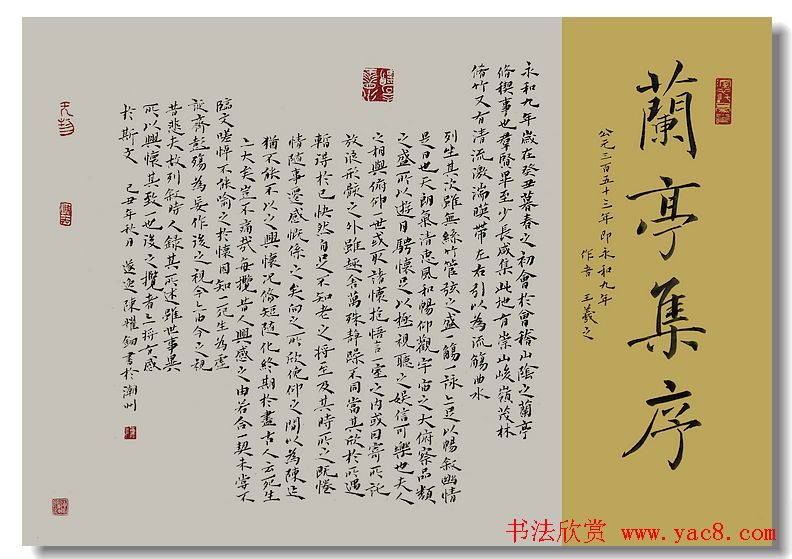 蘭亭集序
公元三百五十三年即永和九年
作者 王羲之
永和九年歲在癸丑暮春之初會於會稽山陰之蘭亭
脩稧事也群賢畢至少長咸集此地有崇山峻嶺茂林
脩竹又有清流激湍暎帶左右引以為流觴曲水
列坐其次雖無絲竹管弦之盛一觴一詠亦足以暢敘幽情
是日也天朗氣清惠風和暢仰觀宇宙之大俯察品類
之盛所以遊目騁懷足以極視聽之娛信可樂也夫人
之相與俯仰一世或取諸懷抱悟言一室之內或因寄所託
放浪形骸之外雖趣舍萬殊靜躁不同當其欣於所遇
暫得於己快然自足不知老之將至及其時所之既惓
情隨事遷感慨係之矣向之所欣俛仰之間以為陳迹
猶不能不以之興懷況脩短隨化終期於盡古人云死生
亦大矣豈不痛哉每攬昔人興感之由若合一契未嘗不
臨文嗟悼不能喻之於懷固知一死生為虛
誕齊彭殤為妄作後之視今亦由今之視
昔悲夫故列敘時人錄其所述雖世事異
所以興懷其致一也後之攬者亦將有感
於斯文 己丑年秋月 陳耀 書於潮州
书法欣赏 www.yac8.com